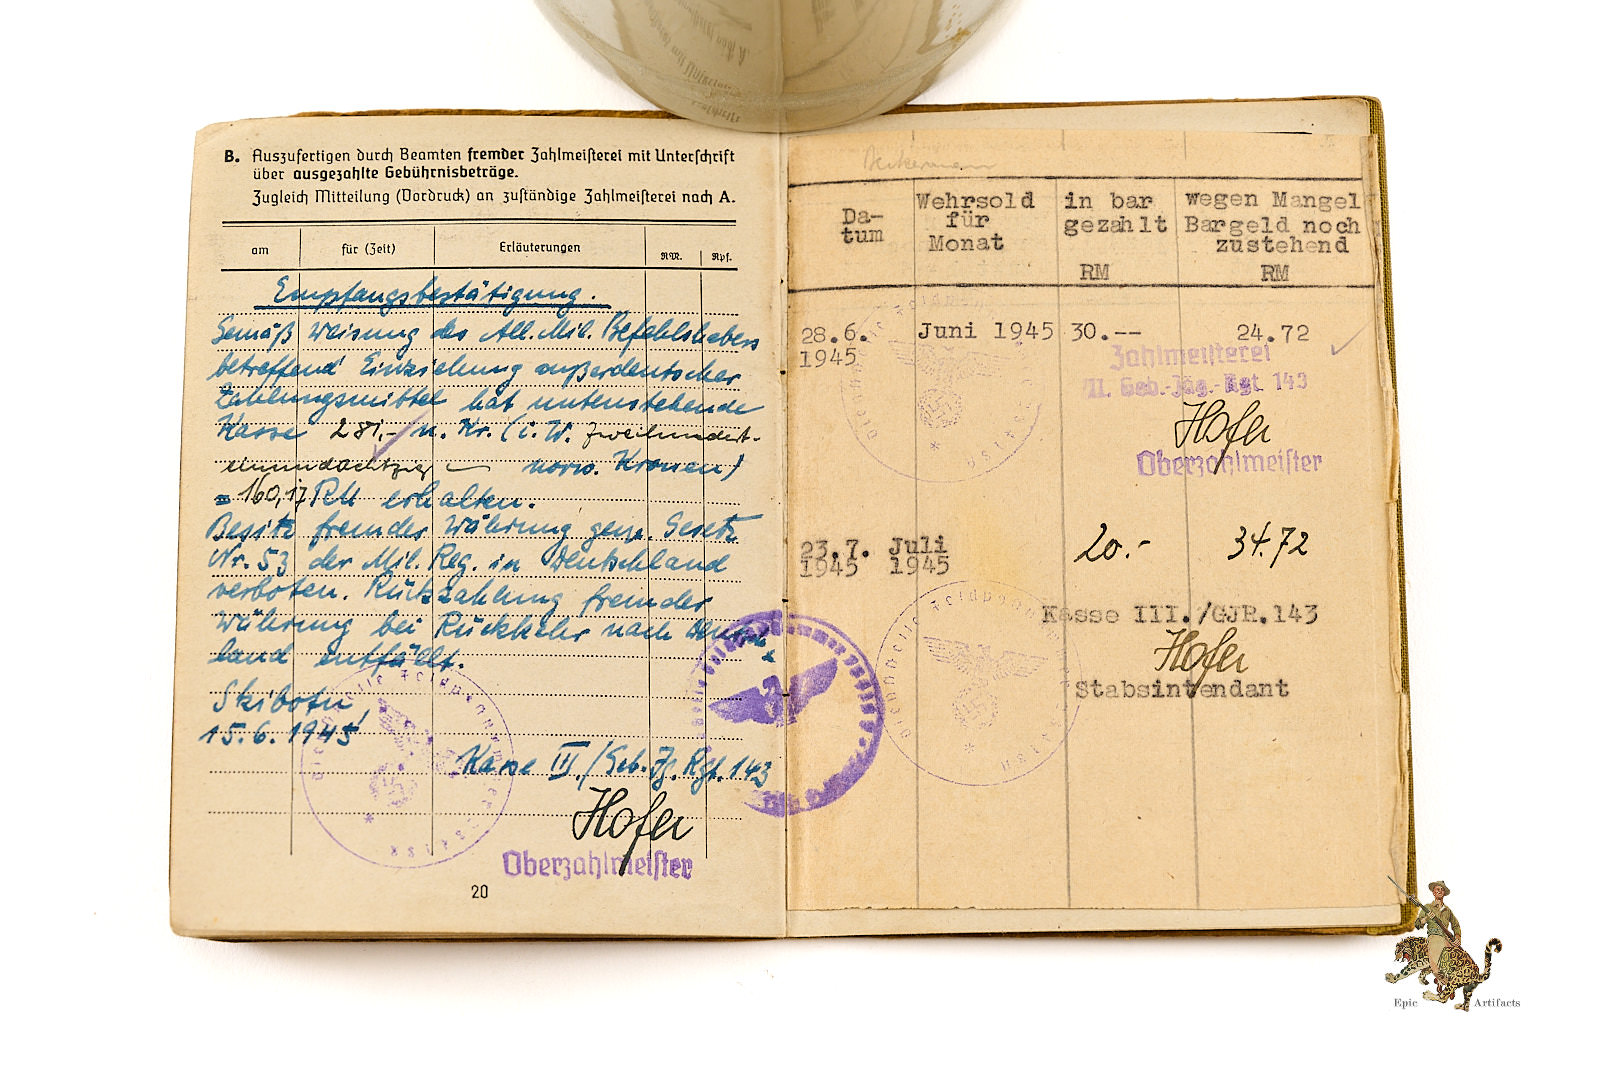 B. Auszufertigen durch Beamten fremder Zahlmeisterei mit Unterschrift
über ausgezahlte Gebührnisbeträge.
Zugleich Mitteilung (Vordruck) an zuständige Zahlmeisterei nach A.
am für (Zeit) Erläuterungen RM. Rpf.
Empfangsbestätigung.
Gemäß Weisung des All. Mil. Befehlshabers
betreffend Einziehung außerdeutscher
Zahlungsmittel hat untenstehende
Kasse 281,- n. Kr. (i. W. Zweihundert-
einundachtzig — norw. Kronen)
= 160,17 RM erhalten.
Besitz fremder Währung gem. Gesetz
Nr. 53 der Mil. Reg. in Deutschland
verboten. Rückzahlung fremder
Währung bei Rückkehr nach Deutsch-
land entfällt.
Skibotn,
15.6.1945
Kasse III./Geb. Jg. Rgt. 143
Hofer
Oberzahlmeister
20
Da-
tum
Wehrsold
für
Monat
in bar
gezahlt
RM
wegen Mangel
Bargeld noch
zustehend
RM
28.6. Juni 1945 30.-- 24.72
1945
Zahlmeisterei
III. Geb.-Jäg.-Rgt 143
Hofer
Oberzahlmeister
23.7. Juli 20.- 34.72
1945 1945
Kasse III./GJR.143
Hofer
Stabsintendant
Epic Artifacts